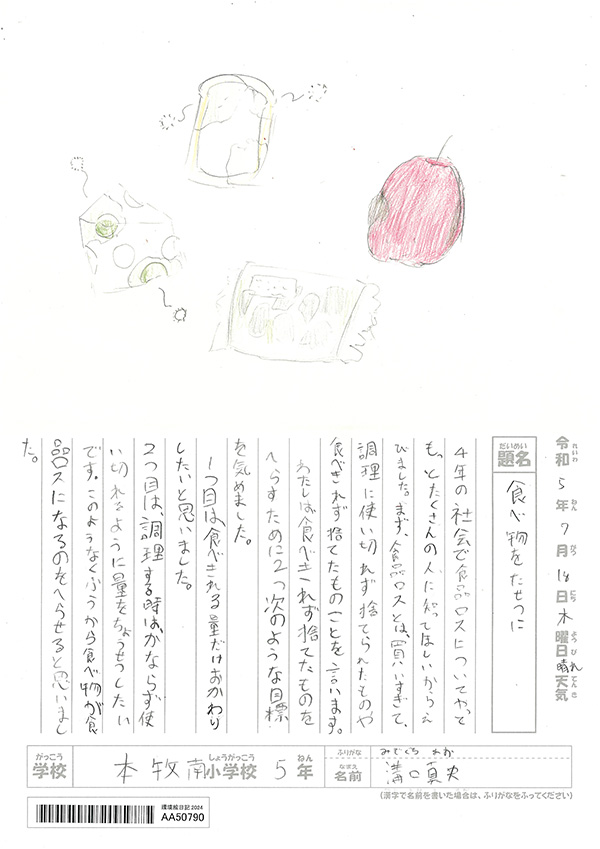 令和5年7月18日木曜日晴れ天気
れいわ ねん がつ にち ようび てんき
だいめい
題名
食べ物をたせつに
4年の社会で食品ロスについてやって
もっとたくさんの人に知てほしいからえ
びました。まず、食品ロスとは、買いすぎて、
調理に使い切れず捨てられたものや
食べきれず捨てたもののことを言います。
わたしは食べきれず捨てたものを
へらすために2つ次のような目標
を気めました。
1つ目は、食べきれる量だけおかわり
したいと思いました。
2つ目は、調理する時は、かならず使
い切れるように量をちょうせつしたい
です。このようなくふうから食べ物が食
品ロスになるのをへらせると思いまし
た。
がっこう しょうがっこう ねん
学校 本牧南小学校 5年
ふりがな
なまえ
名前 溝口真
(漢字で名前を書いた場合は、ふりがなをふってください)
環境絵日記2024
AA50790